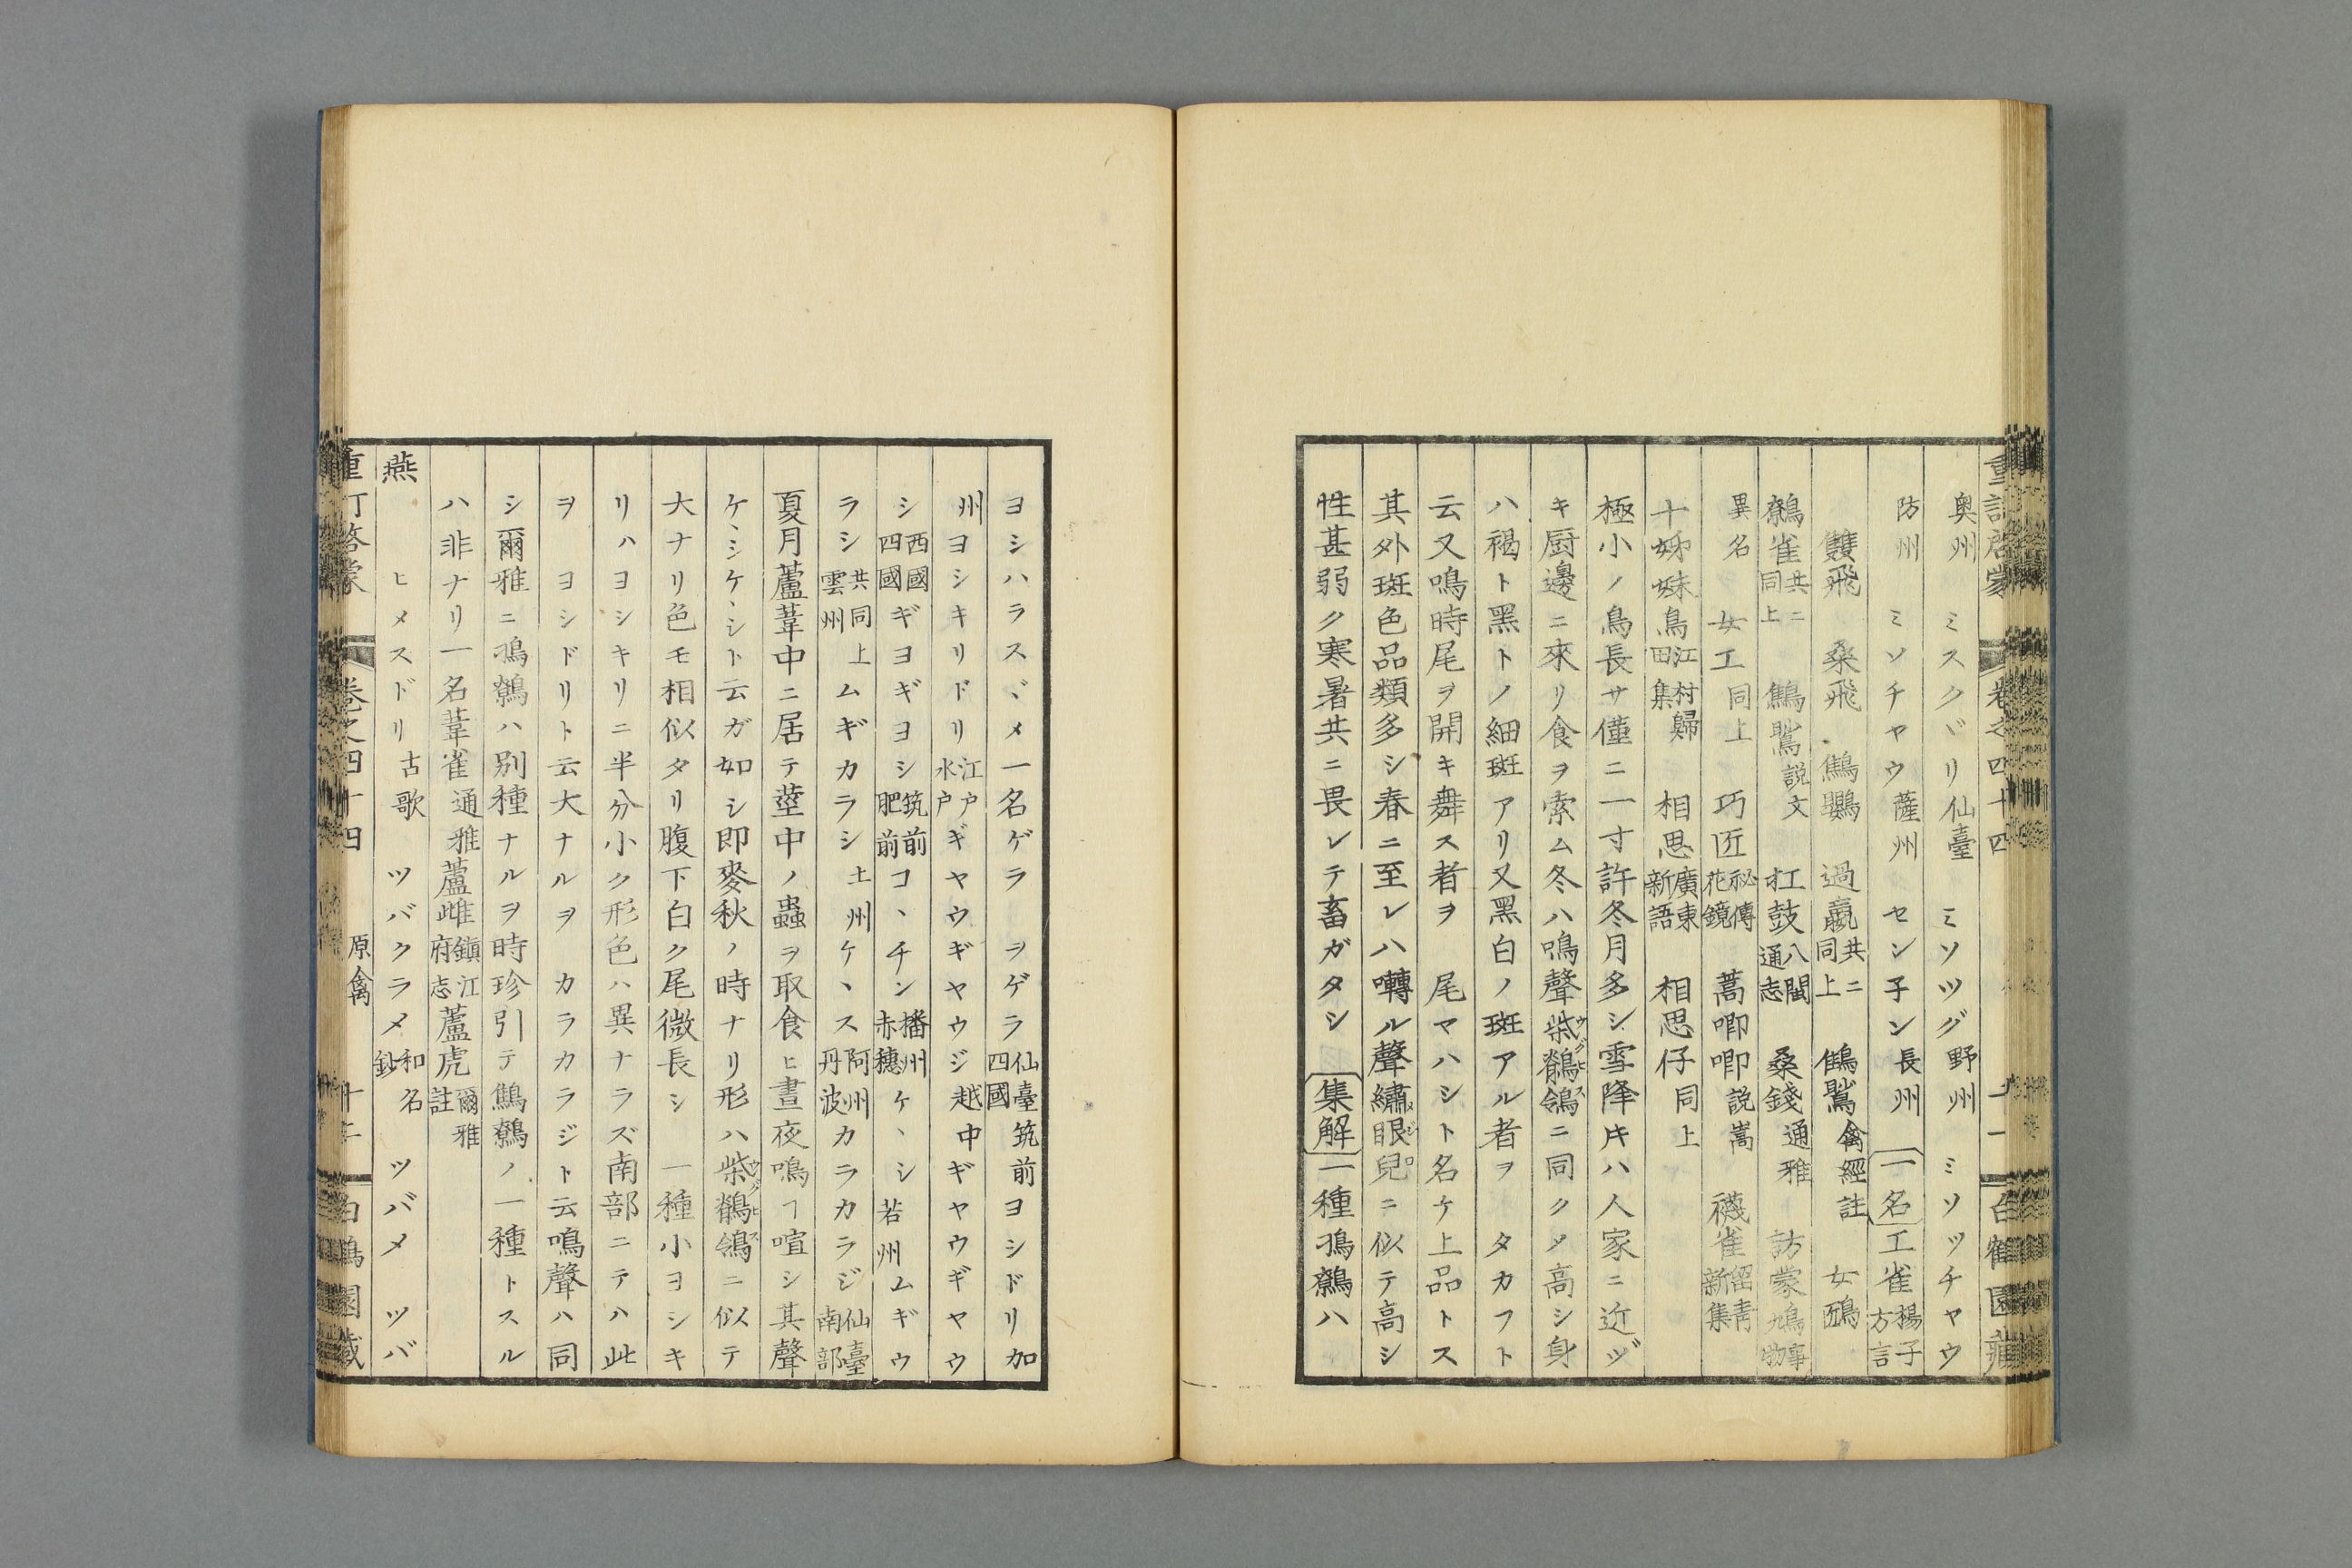 奥州 ミスクヾリ仙臺 ミソツグ野州 ミソッチヤウ
防州 ミソチヤウ薩州 センチン長州 一名 工雀楊子方言
雙飛 桑飛 鷦鸚 過蠃共ニ同上 鶴鷽禽經註 女鴎
鷯雀共ニ同上 鷦鷽説文 扛鼓八閩通志 桑錢通雅 訪蒙鳩事物
異名 女工同上 巧匠祕傳花鏡 蒿唧唧説嵩 襪雀留青新集
十姊妹鳥江村歸田集 相思廣東新語 相思仔同上
極小ノ鳥長サ僅ニ一寸許冬月多シ雪降キハ人家ニ近ヅ
キ厨邊ニ來リ食ヲ索ム冬ハ鳴聲柴鶺鴒ウグヒスニ同クメ高シ身
ハ褐ト黑トノ細斑アリ又黑白ノ斑アル者ヲ タカフト
云又鳴時尾ヲ開キ舞ス者ヲ 尾マハシト名ケ上品トス
其外斑色品類多シ春ニ至レハ囀ル聲繡眼兒メジロニ似テ高シ
性甚弱ク寒暑共ニ畏レテ畜ガタシ 集解 一種鳭鷯ハ
重訂啓蒙 卷之四十四 十一 白鶴園藏
ヨシハラスヾメ一名ゲラ ヲゲラ仙臺四國筑前ヨシドリ加
州ヨシキリドリ江戸水戸ギヤウギヤウジ越中ギヤウギヤウ
シ西國四國ギヨギヨシ筑前肥前コヽチン播州赤穗ケヽシ若州ムギウ
ラシ共同上雲州ムギカラシ土州ケヽス阿州丹波カラカラジ仙臺南部
夏月蘆葦中ニ居テ莖中ノ蟲ヲ取食ヒ晝夜鳴ヿ喧シ其聲
ケヽシケヽシト云ガ如シ即麥秋ノ時ナリ形ハ柴鶺鴒ウグヒスニ似テ
大ナリ色モ相似タリ腹下白ク尾微長シ 一種小ヨシキ
リハヨシキリニ半分小ク形色ハ異ナラズ南部ニテハ此
ヲ ヨシドリト云大ナルヲ カラカラジト云鳴聲ハ同
シ爾雅ニ鳭鷯ハ別種ナルヲ時珍引テ鷦鷯ノ一種トスル
ハ非ナリ一名葦雀通雅蘆雌鎭江府志蘆虎爾雅註
燕 ヒメスドリ古歌 ツバクラメ和名鈔 ツバメ ツバ
重訂啓蒙 卷之四十四 原禽 十二 白鶴園藏